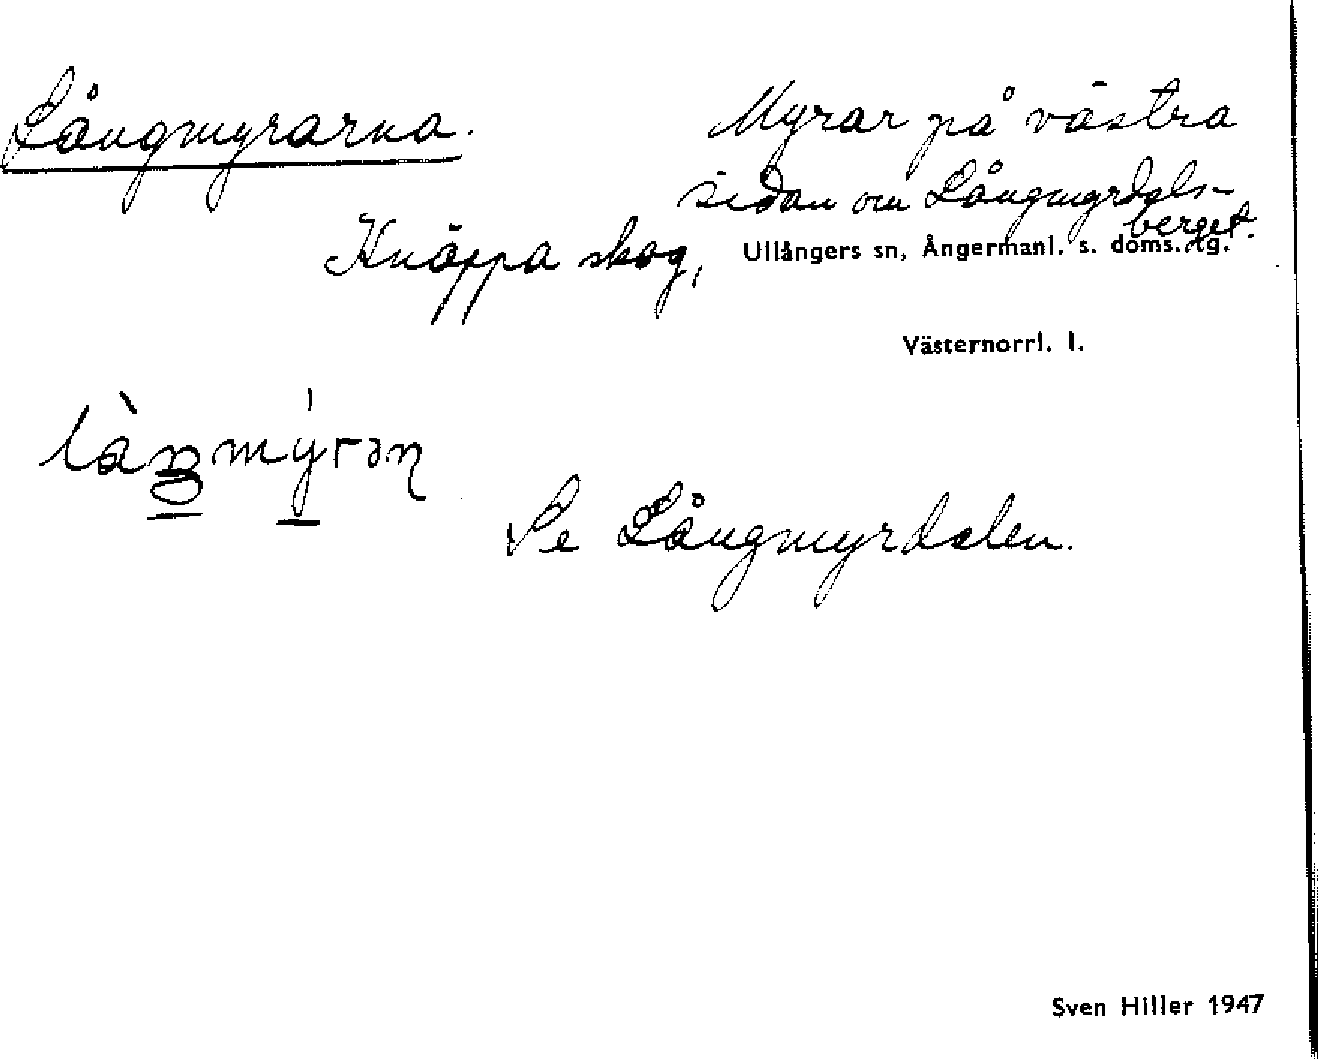 Långmyrarna.
Myrar på västra
sidan om Långmyrdals-
berget.
Knäppa skog, Ullångers sn, Ångermanl. s. doms. tg.
Västernorrl. l.
Se Långmyrdalen.
Sven Hiller 1947